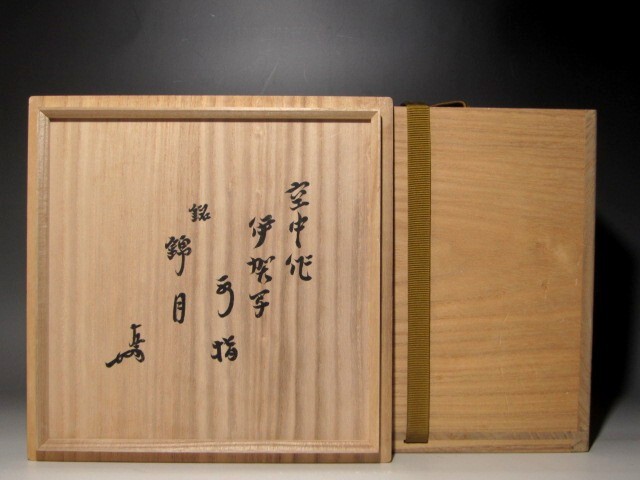 空中作
伊賀写
水指
銘
錦月